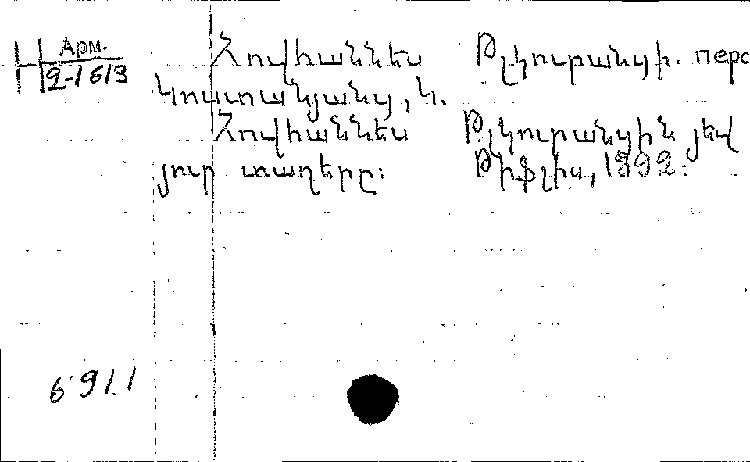 Арм.
H 2-1613
Հովհաննես Թլկուրանցի. перс
Կոստանյանց, Կ.
Հովհաննես Թլկուրանցին յեվ
յուր տաղերը։ Թիֆլիս, 1892.
6911